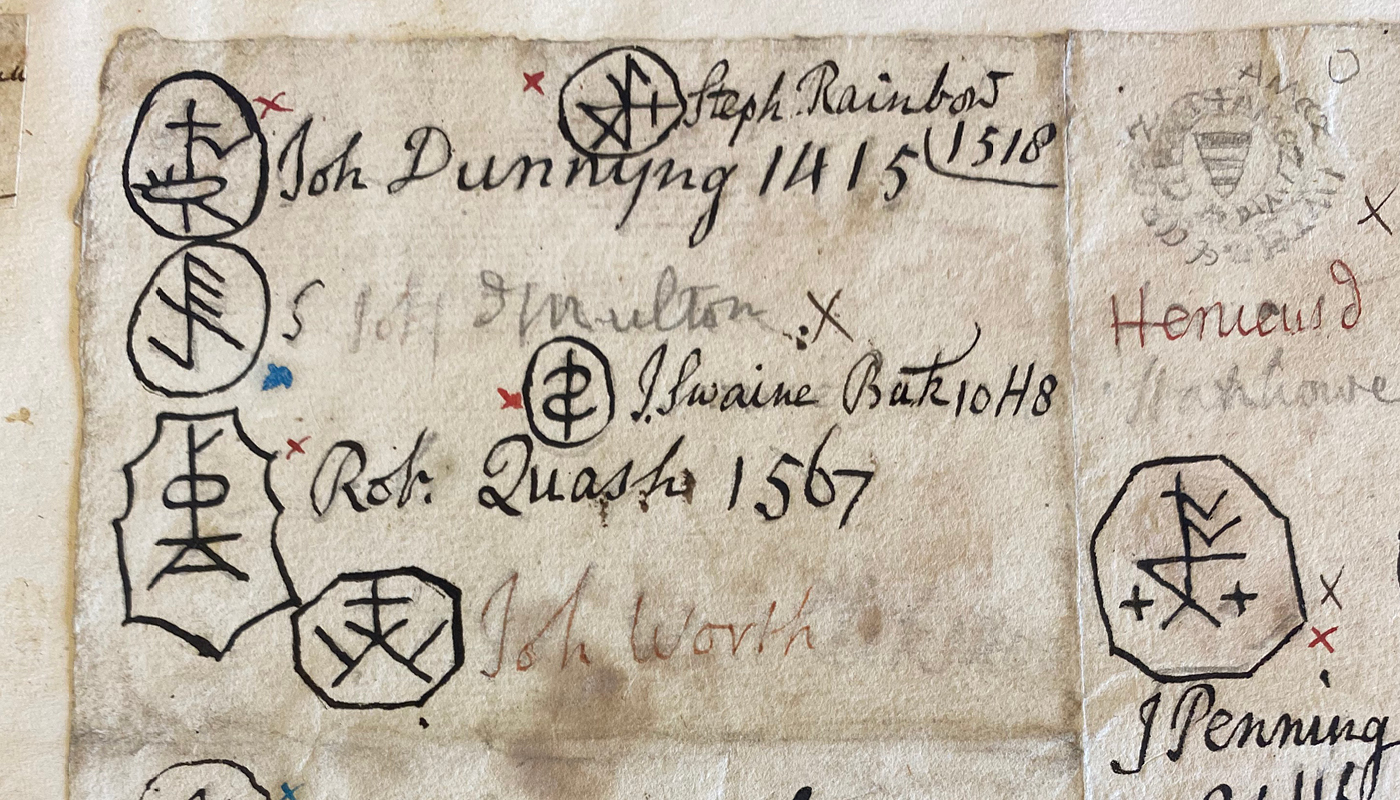 Steph. Rainbow
1518
Joh Dunnyng 1415
S Joh d Multon
J. Swaine Bak 10H8
Rob. Quash 1567
Joh Worth
Henicus d
J Penning